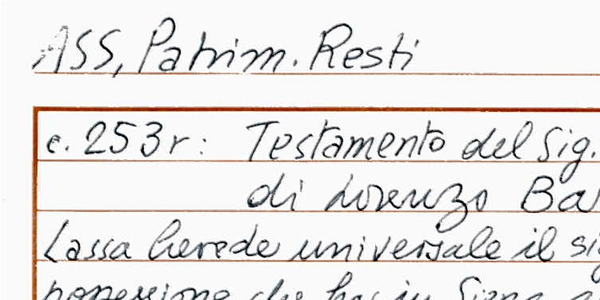 ASS, Patrim. Resti
c. 253r: Testamento del Sig.
di Lorenzo Ba
Lassa herede universale il sig
possessione che ha in Siena